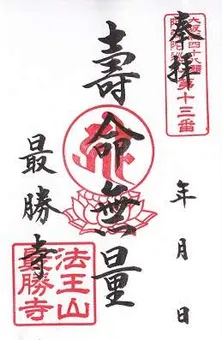 奉拝
第十三番
年月日
壽命無量
最勝寺
法王山
最勝寺